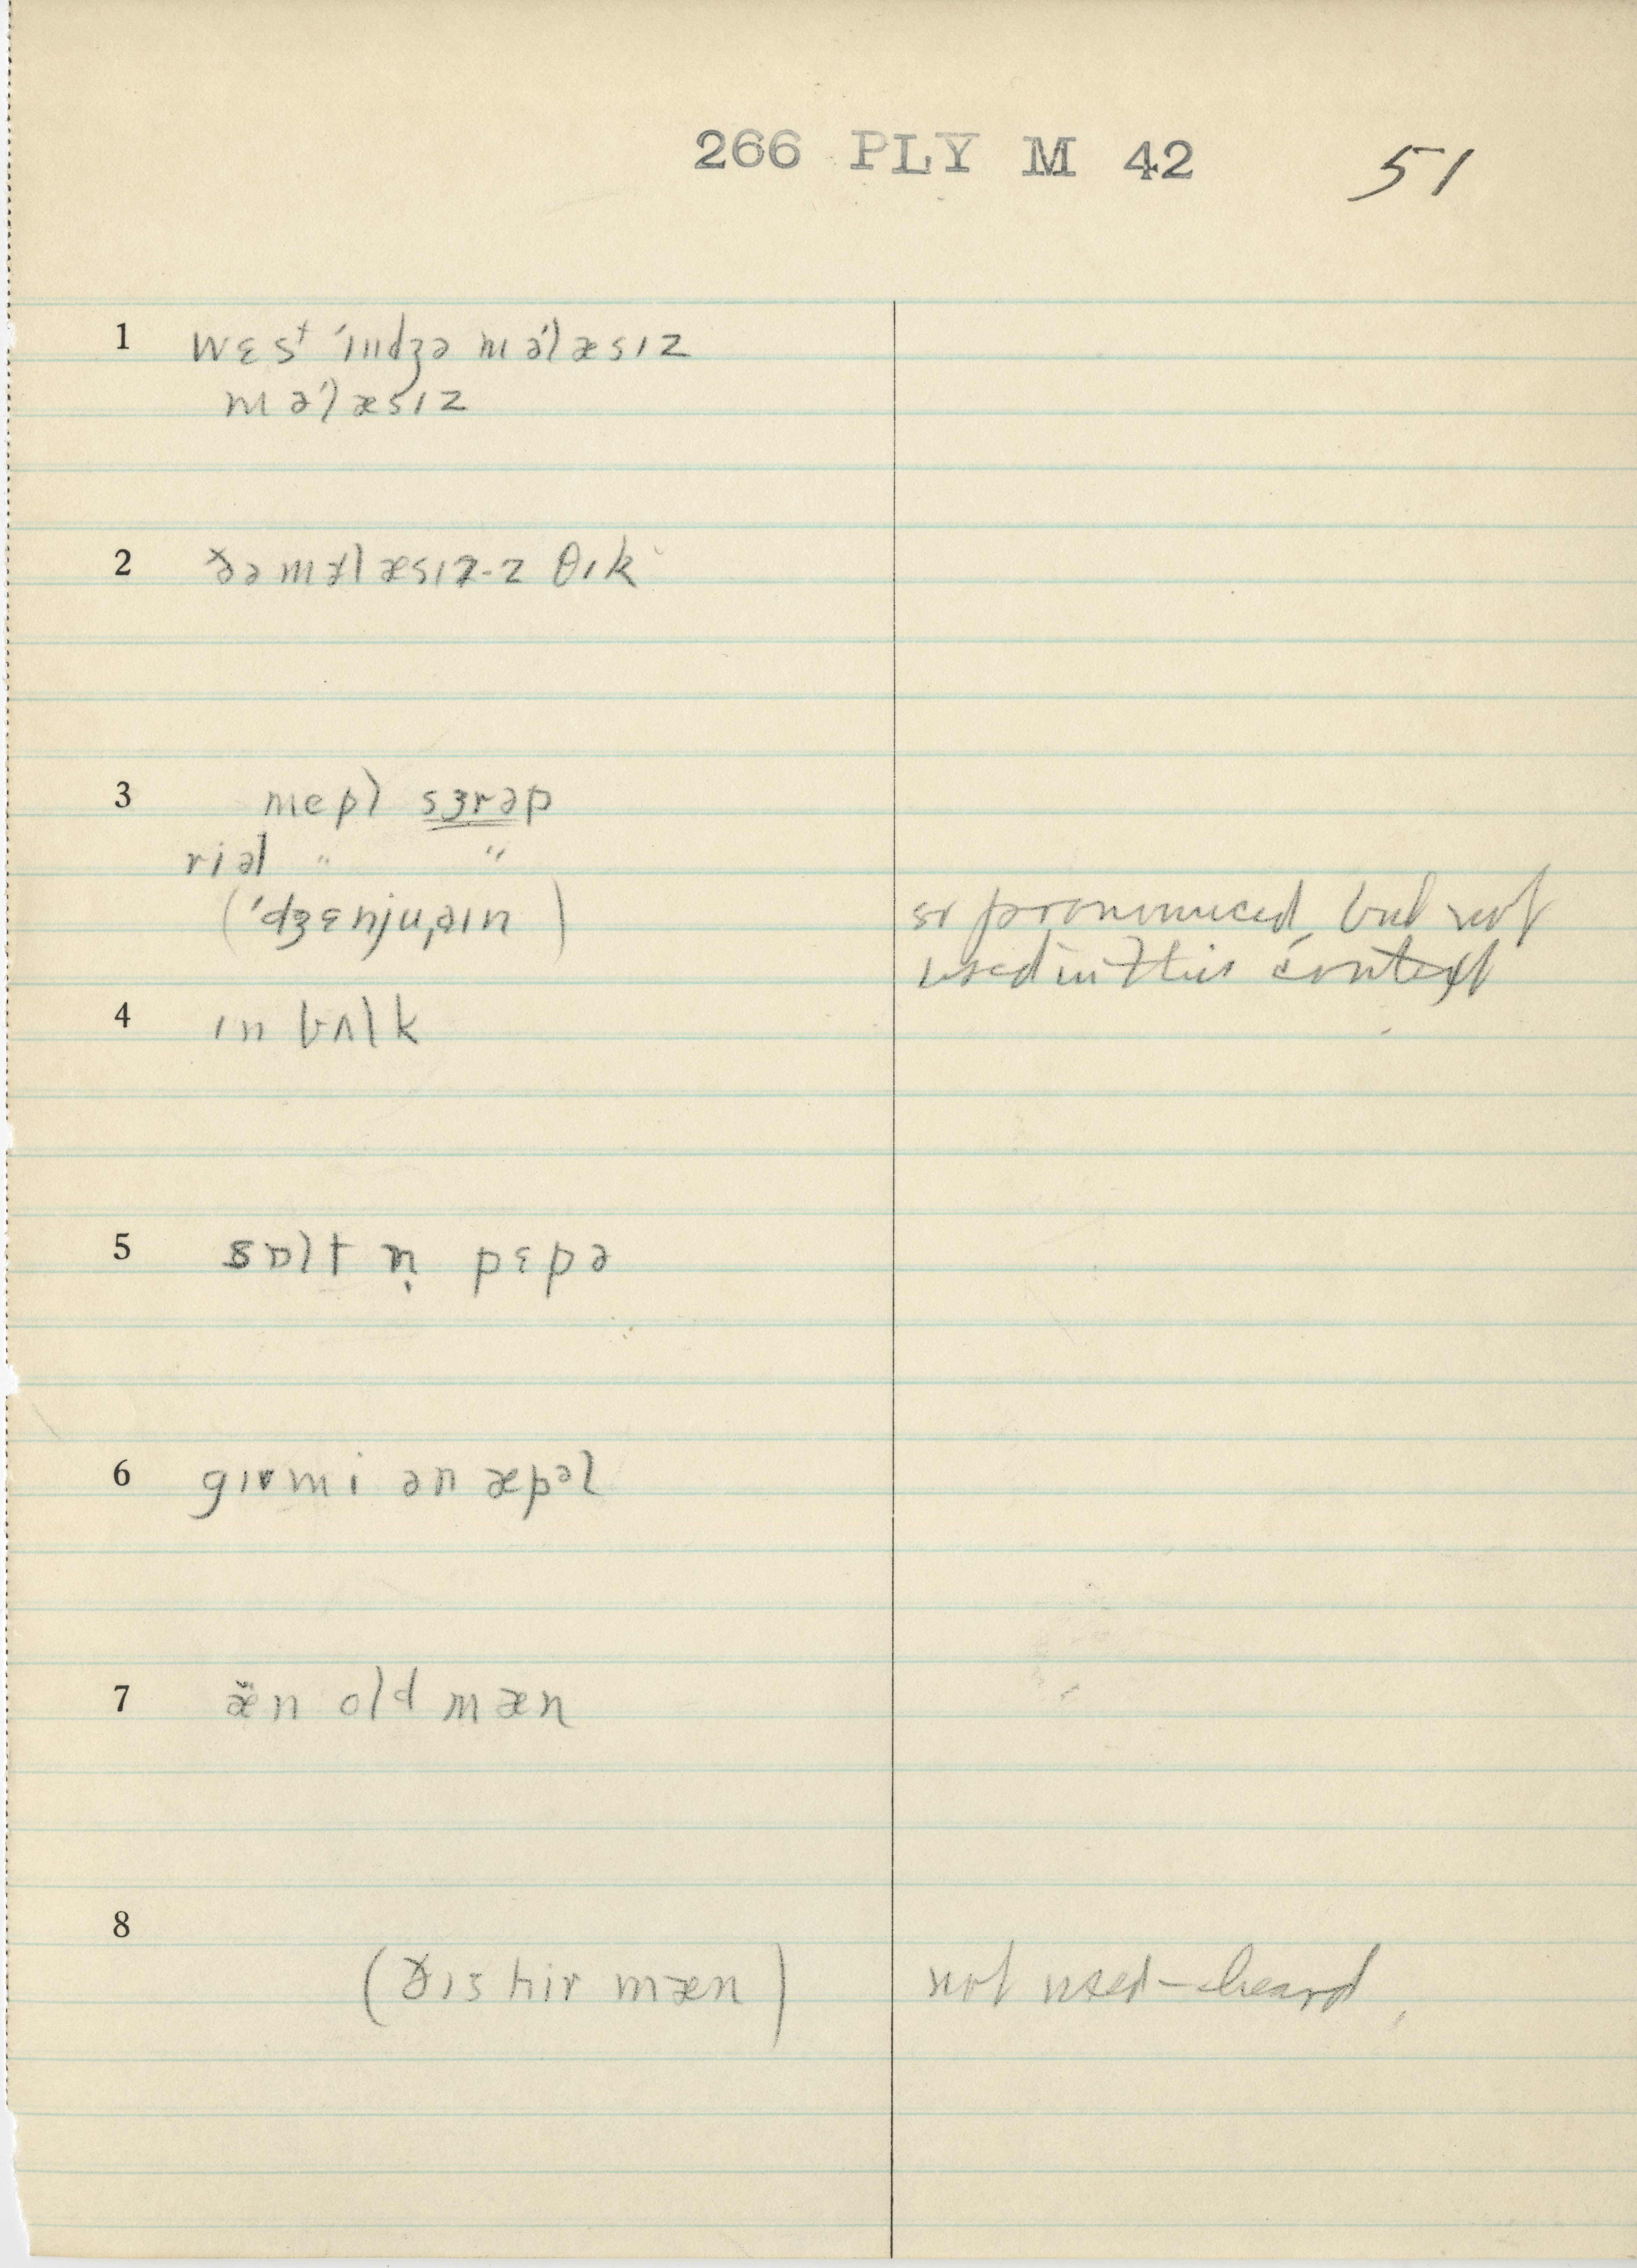 266 PLY M 42 51
1 wɛsᵗ ˈɪndʒə məˈlæsɪz
məˈlæsɪz
2 ðə məlæsɪz-z θɪk
3 mepl sɜrəp
riəl " "
(ˈdʒɛnjuˌaɪn) so pronounced, but not
used in this context
4 ɪn bʌlk
5 sɒlt n̩ pɛpə
6 gɪv mi ən æpəl
7 æ̈n old mæn
8
(ðɪs hir mæn) not used – heard.